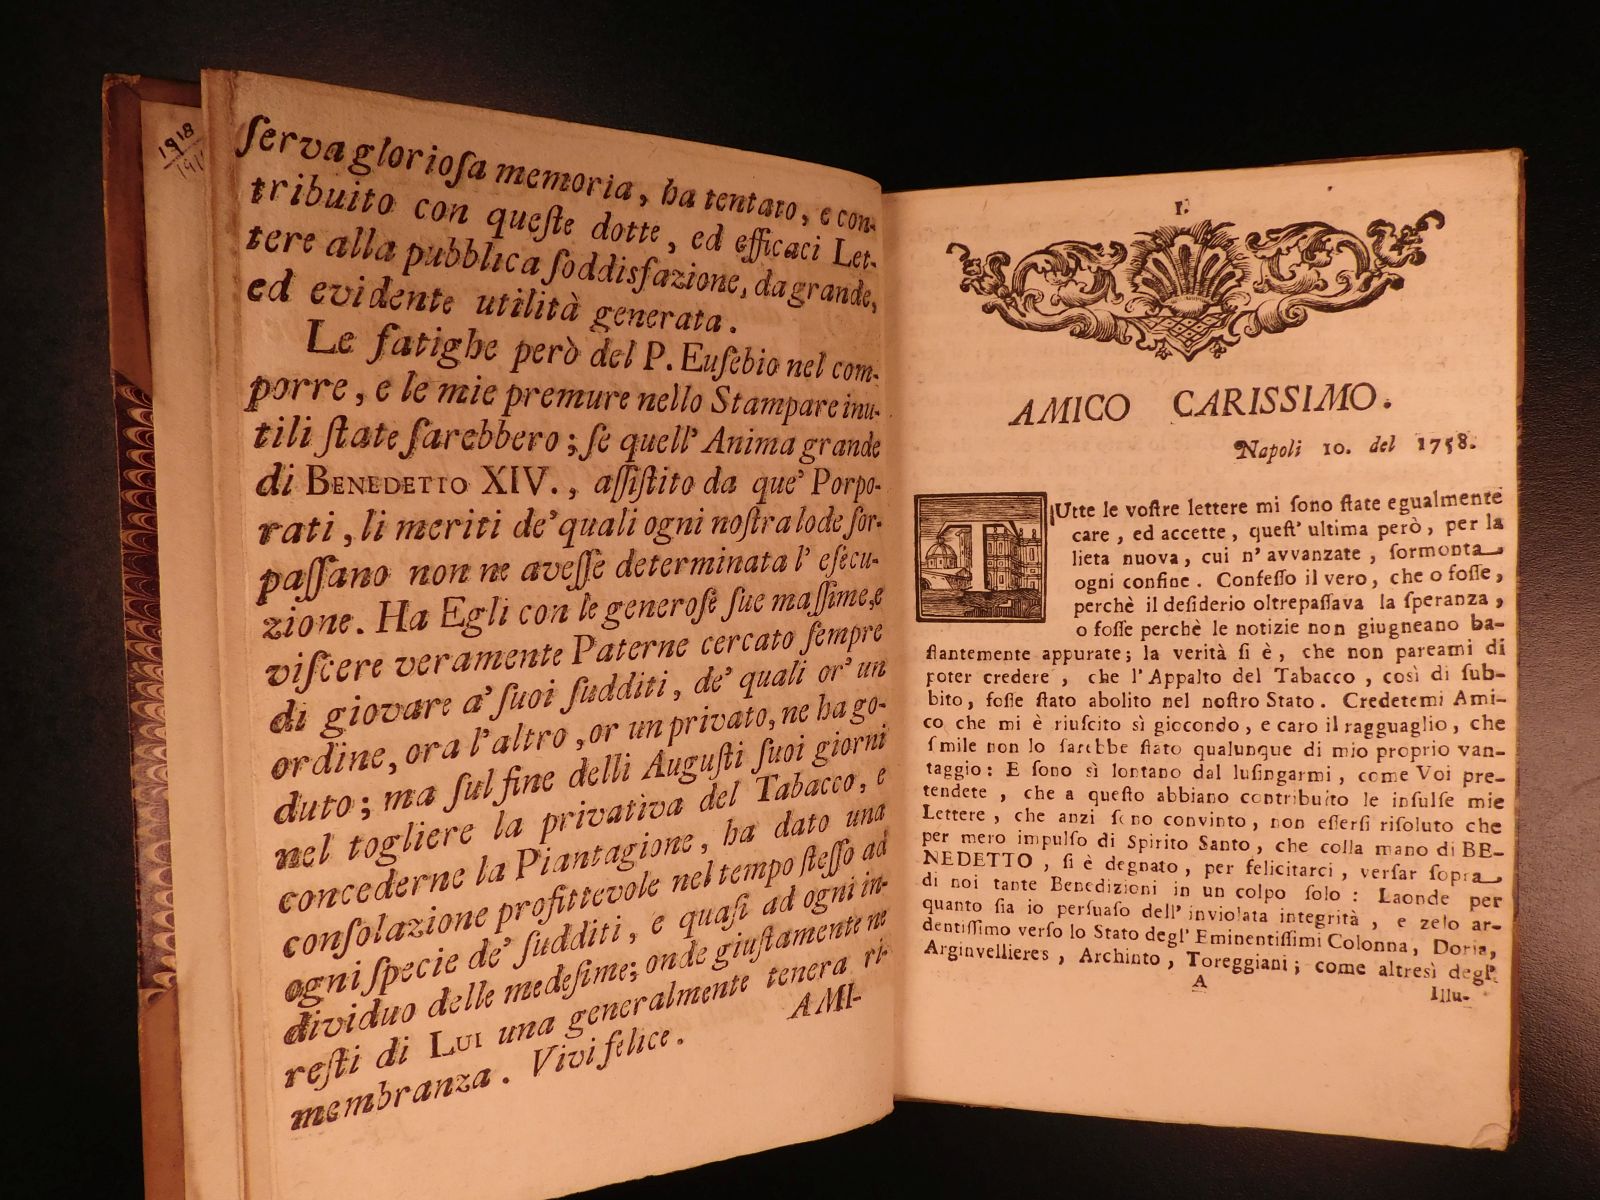 1918
ſerva glorioſa memoria, ha tentato, e con-
tribuito con queſte dotte, ed efficaci Let-
tere alla pubblica ſoddisfazione, da grande,
ed evidente utilità generata.
Le fatighe però del P. Euſebio nel com-
porre, e le mie premure nello Stampare inu-
tili ſtate ſarebbero; ſe quell' Anima grande
di BENEDETTO XIV., aſſiſtito da que' Porpo-
rati, li meriti de' quali ogni noſtra lode ſor-
paſſano non ne aveſſe determinata l' eſecu-
zione. Ha Egli con le generoſe ſue maſſime, e
viſcere veramente Paterne cercato ſempre
di giovare a' ſuoi ſudditi, de' quali or' un
ordine, ora l'altro, or un privato, ne ha go-
duto; ma ſul fine delli Auguſti ſuoi giorni
nel togliere la privativa del Tabacco, e
concederne la Piantagione, ha dato una
conſolazione profittevole nel tempo ſteſſo ad
ogni ſpecie de' ſudditi, e quaſi ad ogni in-
dividuo delle medeſime; onde giuſtamente ne
reſti di LUI una generalmente tenera ri-
membranza. Vivi felice.
AMI-
I.
AMICO CARISSIMO.
Napoli 10. del 1758.
TUtte le voſtre lettere mi ſono ſtate egualmente
care, ed accette, queſt' ultima però, per la
lieta nuova, cui n'avvanzate, ſormonta
ogni confine. Confeſſo il vero, che o foſſe,
perchè il deſiderio oltrepaſſava la ſperanza,
o foſſe perchè le notizie non giugneano ba-
ſtantemente appurate; la verità ſi è, che non pareami di
poter credere, che l'Appalto del Tabacco, così di ſub-
bito, foſſe ſtato abolito nel noſtro Stato. Credetemi Ami-
co che mi è riuſcito sì giocondo, e caro il ragguaglio, che
ſimile non lo ſarebbe ſtato qualunque di mio proprio van-
taggio: E ſono sì lontano dal luſingarmi, come Voi pre-
tendete, che a queſto abbiano contribuito le inſulſe mie
Lettere, che anzi ſono convinto, non eſſerſi riſoluto che
per mero impulſo di Spirito Santo, che colla mano di BE-
NEDETTO, ſi è degnato, per felicitarci, verſar ſopra
di noi tante Benedizioni in un colpo ſolo: Laonde per
quanto ſia io perſuaſo dell' inviolata integrità, e zelo ar-
dentiſſimo verſo lo Stato degl' Eminentiſſimi Colonna, Doria,
Arginvellieres, Archinto, Toreggiani; come altresì degl'
A
Illu-